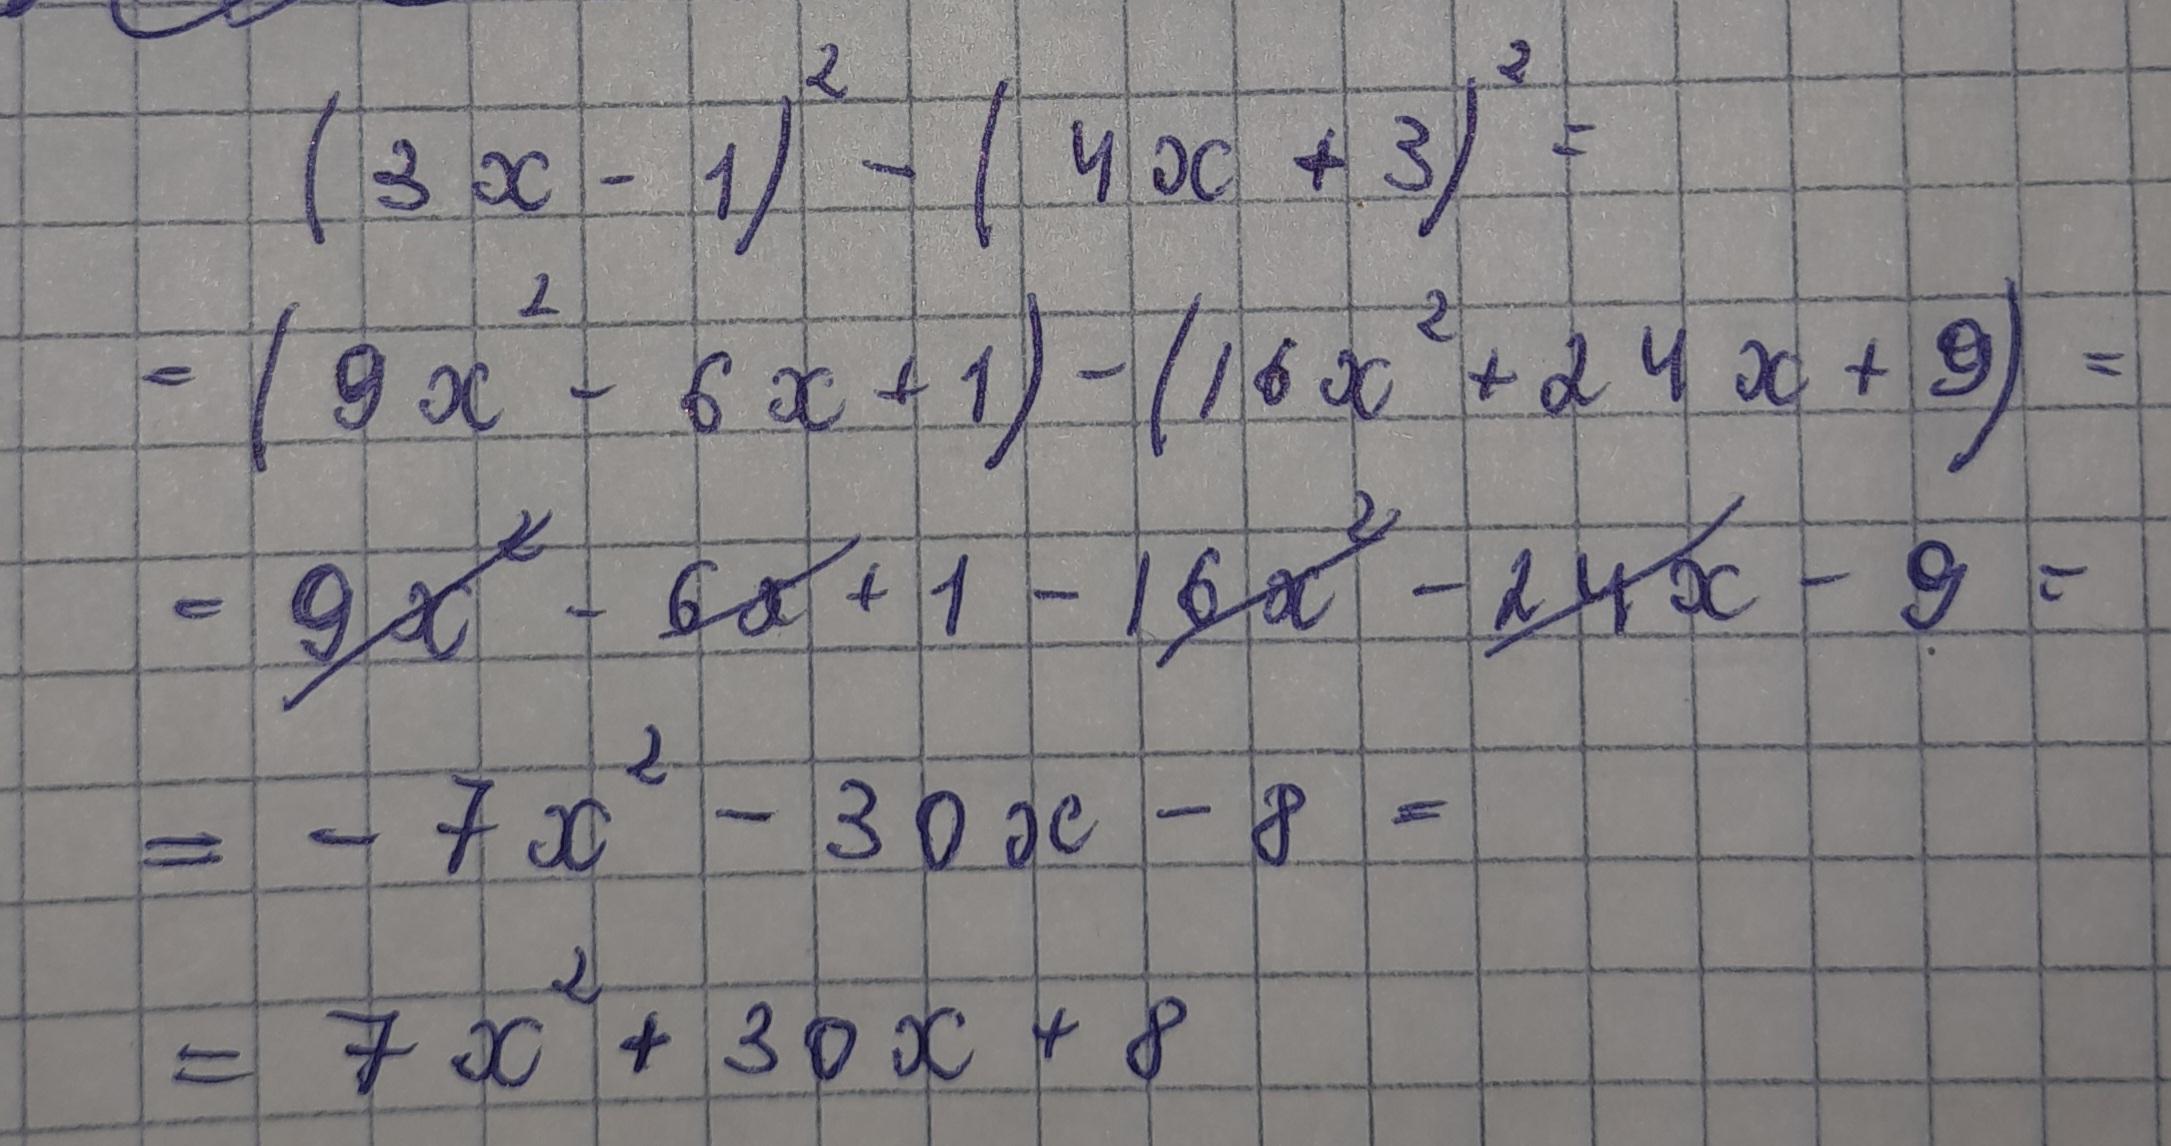 (3x - 1)² - (4x + 3)² =
= (9x² - 6x + 1) - (16x² + 24x + 9) =
= 9x² - 6x + 1 - 16x² - 24x - 9 =
= - 7x² - 30x - 8 =
= 7x² + 30x + 8